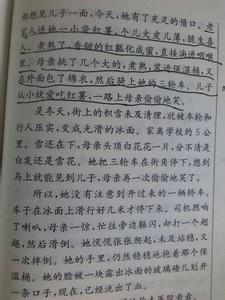 都想见儿子一面，今天，她有了充足的借口。老
家人送她一小袋红薯，个儿大皮儿薄，脆生喜
人。煮熟了，香甜的红瓤化成蜜，直接淌进咽喉
里。母亲挑了几个大的，煮熟，装进保温桶，又
在外面包了棉衣，然后骑上她的三轮车。儿子
从小就爱吃红薯，一路上母亲偷偷地笑。
是冬天，街上的积雪未及清理，就被车轮和
行人压实，变成光滑的冰面。家离学校约5公
里。雪还在下，母亲头顶白花花一片，分不清是
白发还是雪花。她把三轮车在街角停下，想到
马上就能见到儿子，母亲再一次偷偷地笑了。
所以，她没有注意到开过来的一辆轿车。
车子在冰面上滑行好几米才停下来。司机摁响
了喇叭，母亲一惊，忙往旁边躲闪，却打一个趔
趄，然后滑倒。她慌慌张张爬起，未及站稳，又
一次摔倒。她的手里，仍然稳稳地抱着那个保
温桶。她的脸被一块露出冰面的玻璃碴儿划开
一条口子，现在，已经流出了血。